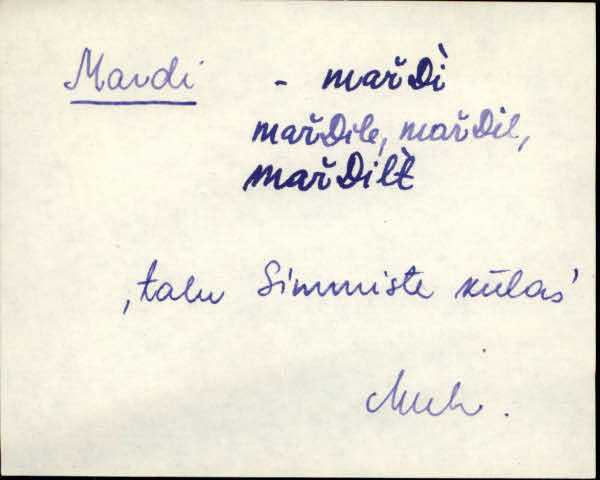 Mardi - mařDì
mařDile, mařDil,
mařDilt
‚talu Simmiste külas’
Muh.